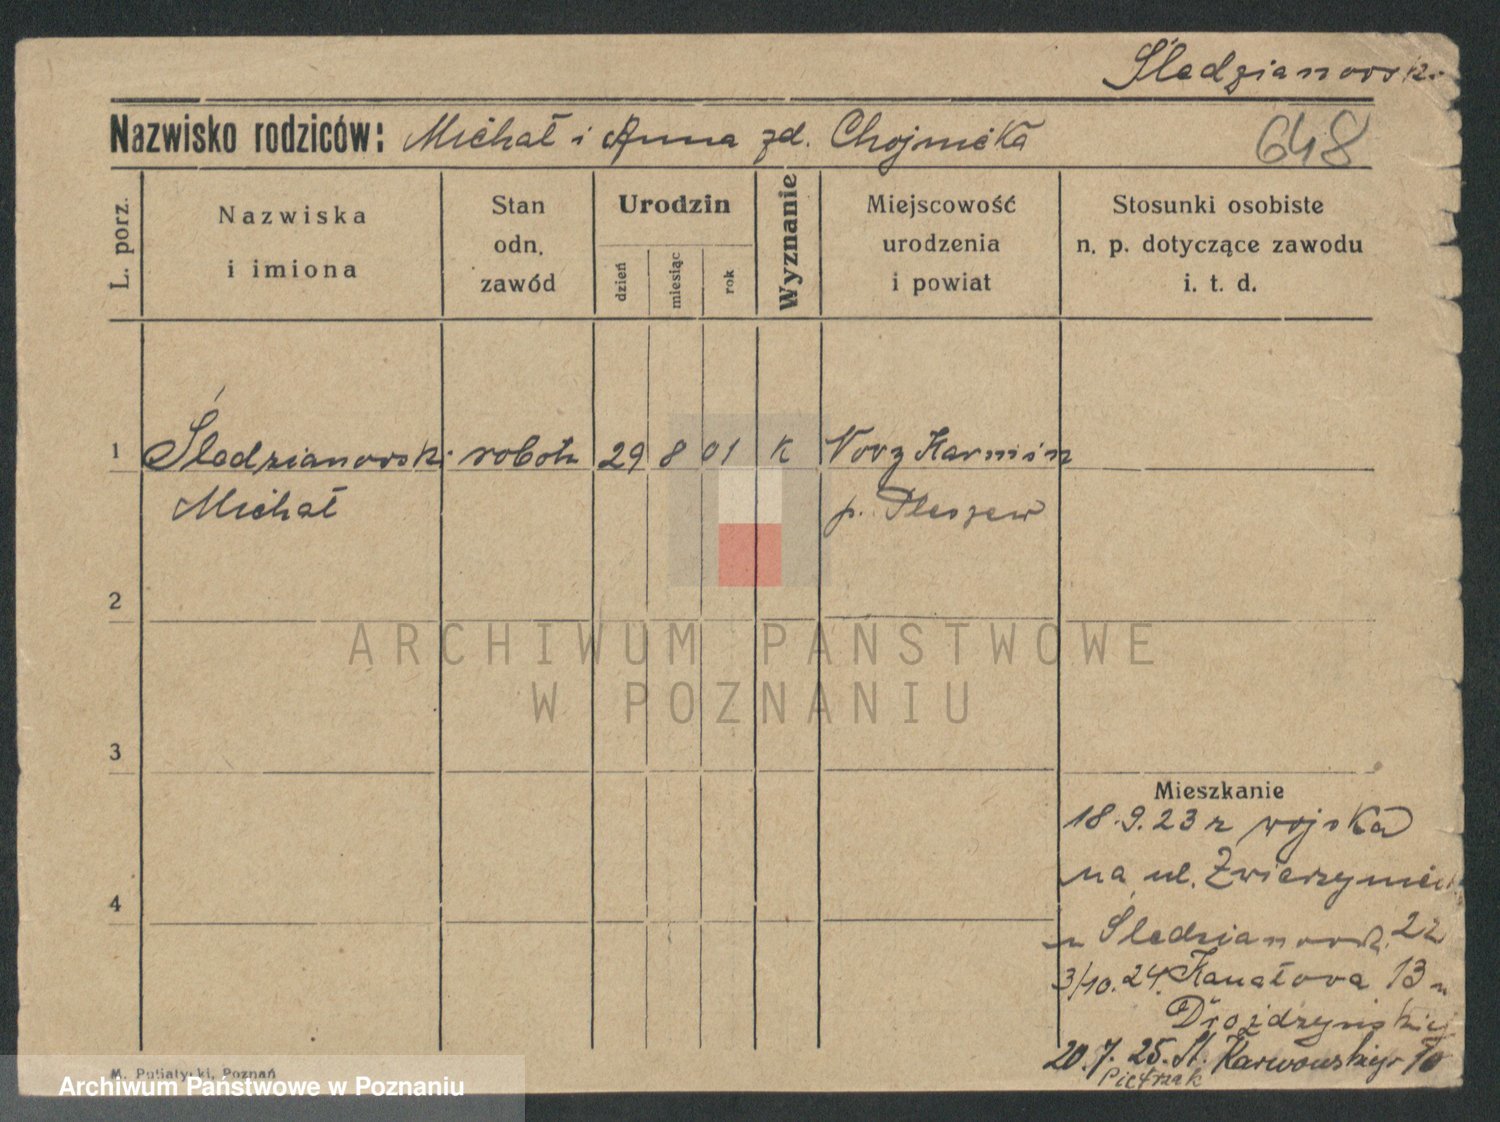 Śledzianowski
Nazwisko rodziców: Michał i Anna zd. Chojnicka
648
L. porz.
Nazwiska
i imiona
Stan
odn.
zawód
Urodzin
dzień
miesiąc
rok
Wyznanie
Miejscowość
urodzenia
i powiat
Stosunki osobiste
n. p. dotyczące zawodu
i. t. d.
1 Śledzianowski robotn 29 8 01 k Karmin
Michał p. Pleszew
2
ARCHIWUM PAŃSTWOWE
W POZNANIU
3
Mieszkanie
18.9.23 z wojska
na ul. Zwierzyniec
4
u Śledzianowsk. 22
3/10.24. Kanałowa 13 u
Drożdżyńskiej
20.7.25. St. Karwowskiego 10
Pietrzak
M. Putiatycki, Poznań
Archiwum Państwowe w Poznaniu